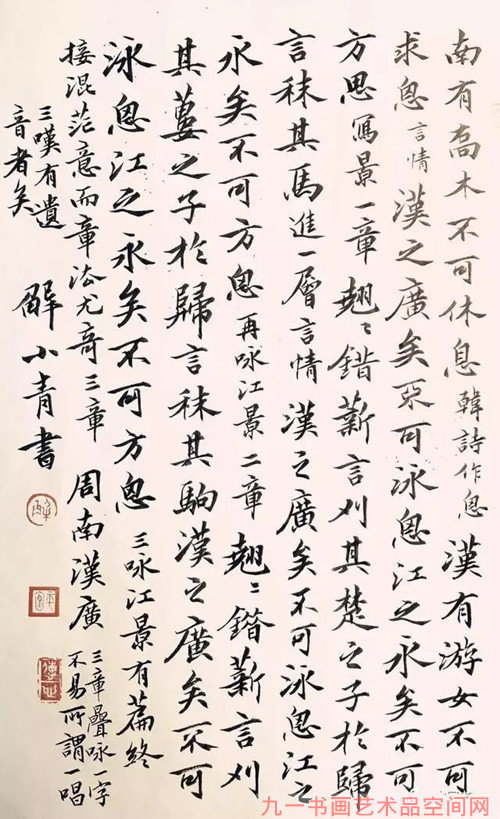 南有喬木不可休息韓詩作思漢有游女不可
求思言情漢之廣矣不可泳思江之永矣不可
方思寫景一章翹〻錯薪言刈其楚之子於歸
言秣其馬進一層言情漢之廣矣不可泳思江之
永矣不可方思再咏江景二章翹〻錯薪言刈
其蔞之子於歸言秣其駒漢之廣矣不可
泳思江之永矣不可方思三咏江景有篇終
接混茫意而章法尤奇三章周南漢廣三章疊咏一字
不易所謂一唱
三嘆有遺
音者矣
解小青書
九一书画艺术品空间网